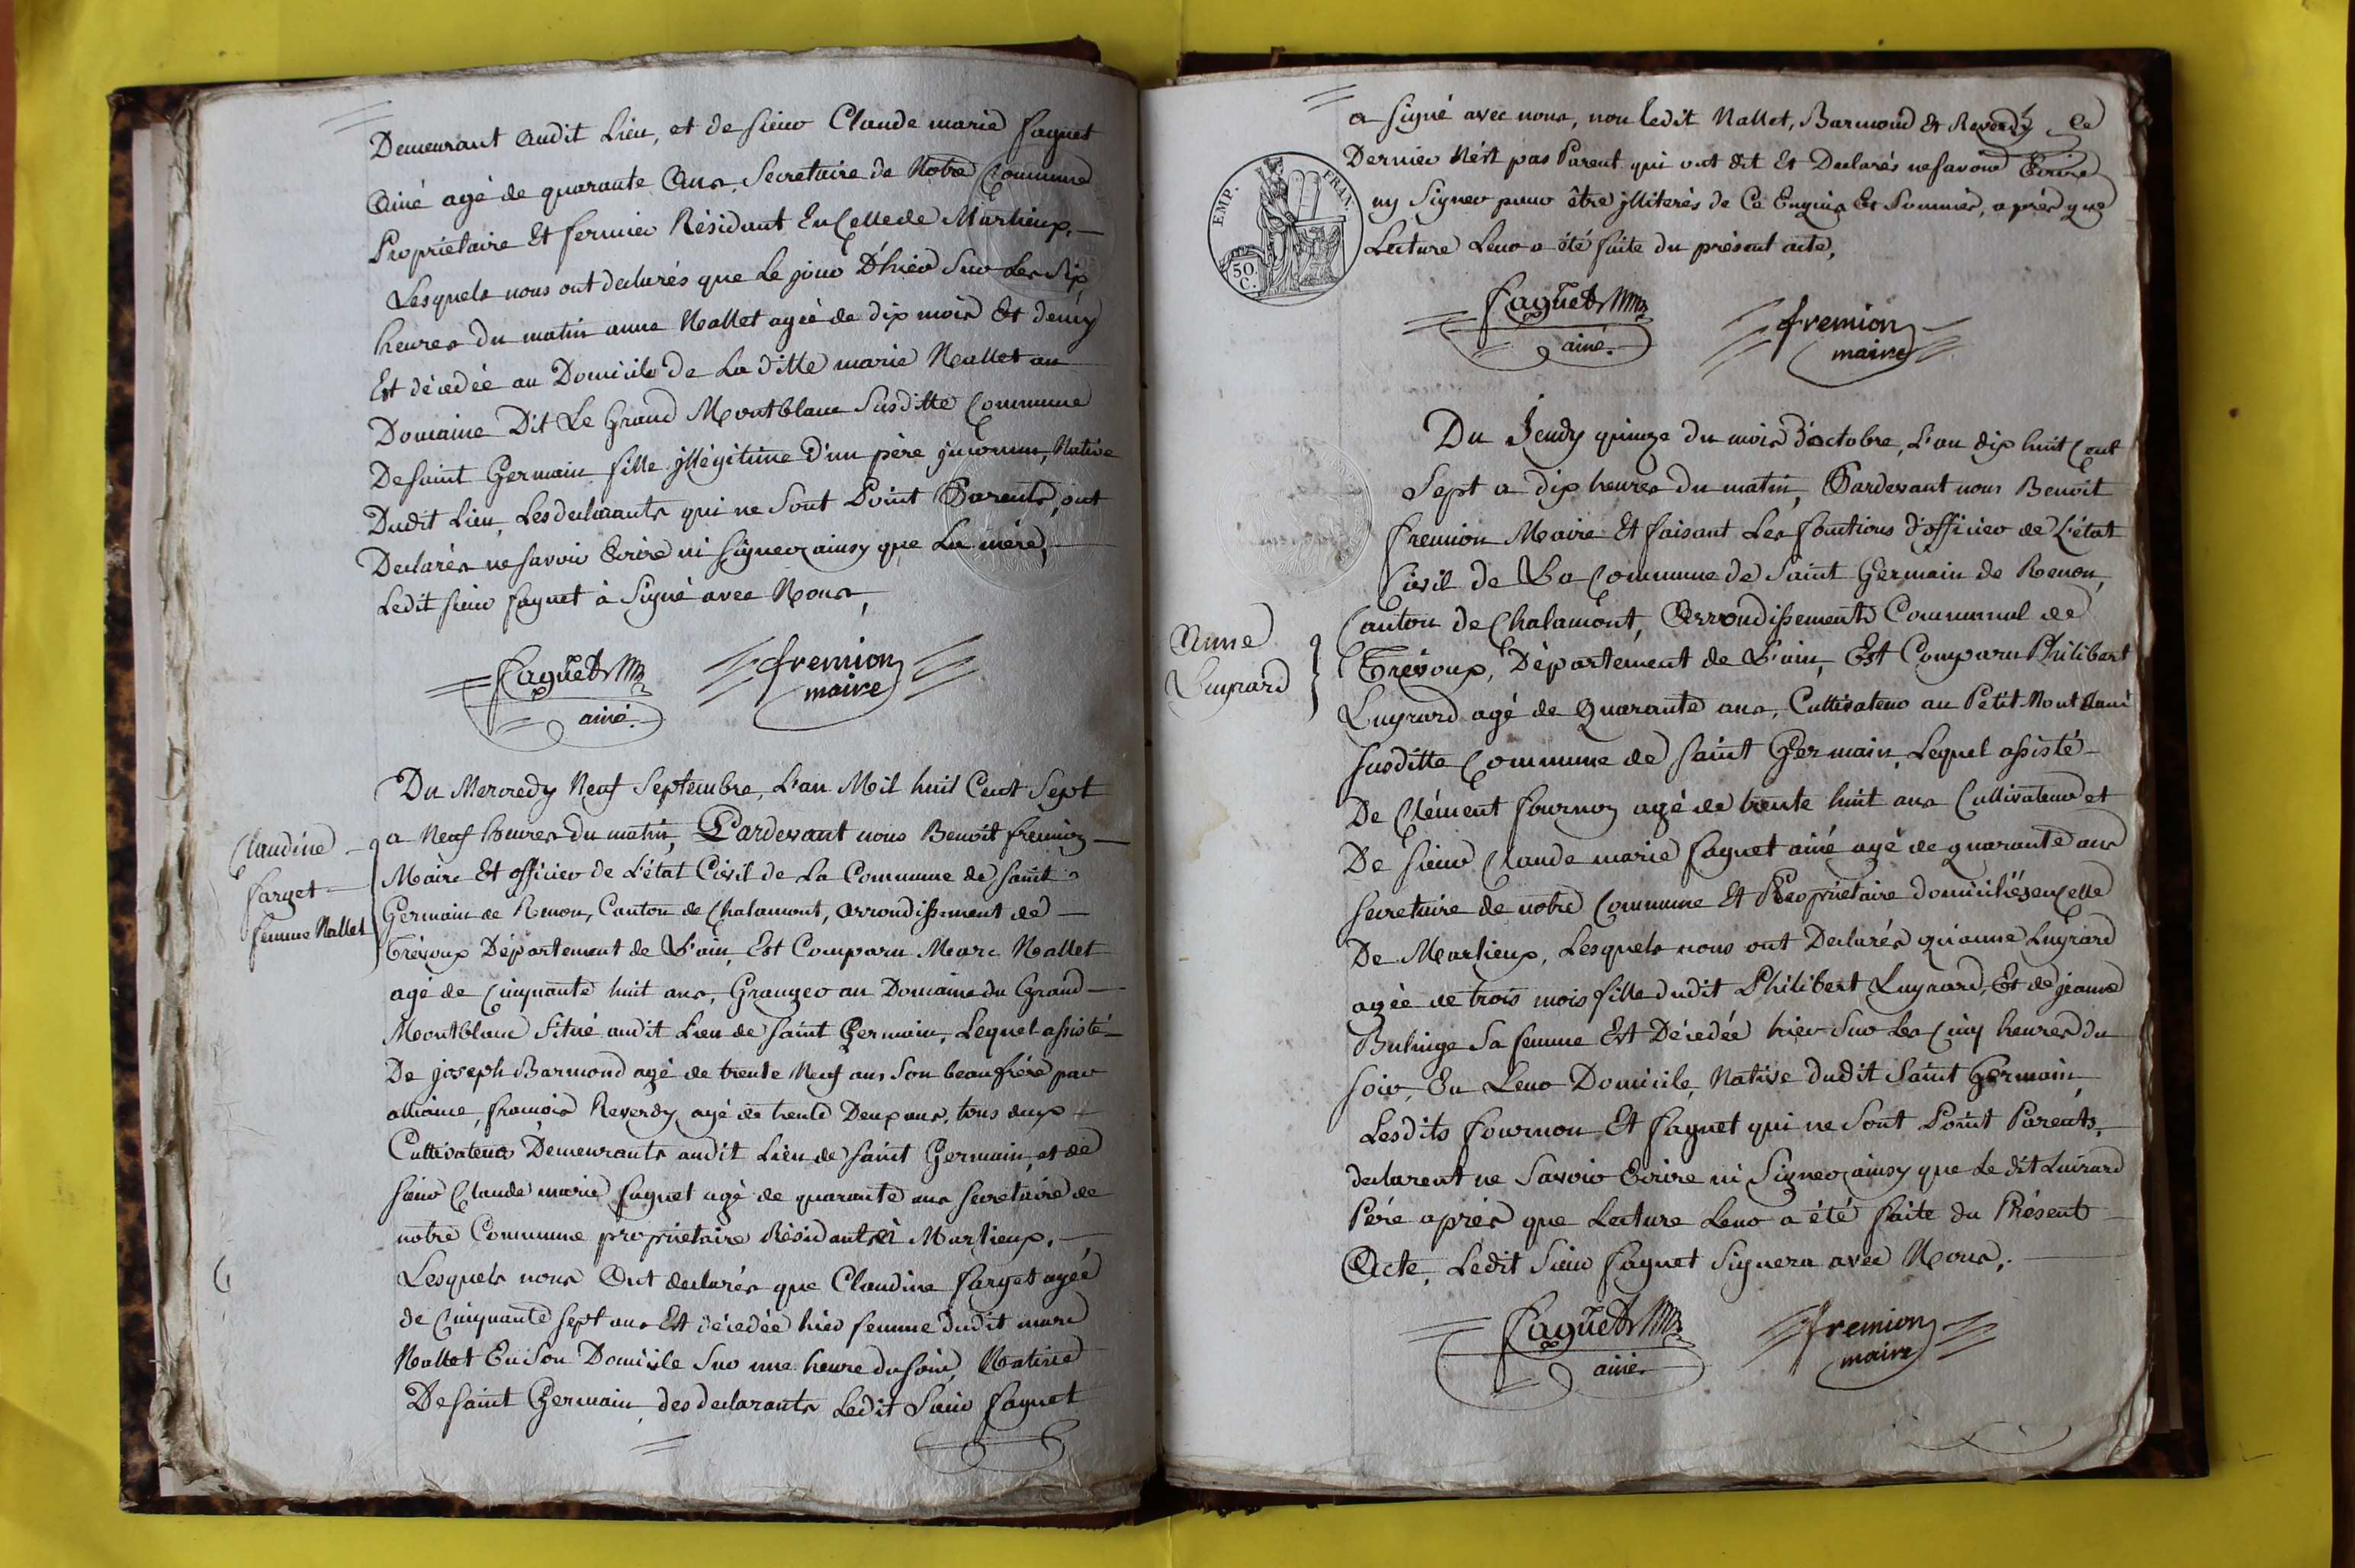 Demeurant audit Lieu, et de sieur Claude marie faguet
Ainé agé de quarante Ans, Secretaire de Notre Commune
Proprietaire Et fermier Résidant En Cellede Marlieux.
Lesquels nous ont declarés que Le jour D'hier Sur Les Six
heures Du matin anne Nallet agée de dix mois Et demy
Est décedée au Domicile de La ditte marie Nallet au
Domaine Dit Le Grand Montblanc Susditte Commune
De Saint Germain fille jllégitime d'un père jnconnu, Native
Dudit Lieu, Les declarants qui ne Sont Point Parents, ont
Declarés ne savoir Ecrire ni signer ainsy que La mère,
Ledit sieur faguet à Signé avec Nous,
faguet
ainé.
fremion
maire
Du Mercredy Neuf Septembre, L'an Mil huit Cent Sept
Claudine
farget
femme Nallet
a Neuf heures Du matin, Pardevant nous Benoit fremion
Maire Et officier de L'état Civil de La Commune de Saint
Germain de Renon, Canton de Chalamont, arrondissement de
Trévoux Département de L'ain, Est Comparu Marc Nallet
agé de Cinquante huit ans, Granger au Domaine du Grand
Montblanc Situé audit Lieu de Saint Germain, Lequel assisté
De joseph Barmond agé de trente Neuf ans Son beaufrère par
alliance, françois Reverdy agé de trente Deux ans, tous deux
Cultivateurs Demeurants audit Lieu de Saint Germain, et de
sieur Claude marie faguet agé de quarante ans secretaire de
notre Commune proprietaire Résidant à Marlieux.
Lesquels nous Ont declarés que Claudine farget agée
de Cinquante sept ans Est décedée hier femme dudit marc
Nallet En Son Domicile Sur une heure du soir, Native
De Saint Germain, des declarants Ledit Sieur faguet
a signé avec nous, non ledit Nallet, Barmond Et Reverdy Ce
Dernier N'est pas Parent qui ont dit Et Declarés ne savoir Ecrire
ny Signer pour être jlliterés de Ce Enquis Et Sommés, après que
Lecture Leur a été faite du présent acte,
EMP. FRAN.
50
C.
faguet
ainé.
fremion
maire
Du Jeudy quinze du mois d'octobre, L'an dix huit Cent
Sept a dix heures du matin, Pardevant nous Benoit
fremion Maire Et faisant Les fonctions d'officier de L'état
Civil de La Commune de Saint Germain de Renon,
Anne
Luyrard
Canton de Chalamont, Arrondissement Communal de
Trévoux, Département de L'ain, Est Comparu Philibert
Luyrard agé de Quarante ans, Cultivateur au Petit Mont blanc
susditte Commune de Saint Germain, Lequel assisté
De Clément fournon agé de trente huit ans Cultivateur et
De sieur Claude marie faguet ainé agé de quarante ans
secretaire de notre Commune Et Proprietaire domiciliés en Celle
De Marlieux, Lesquels nous ont Declarés qu'anne Luyrard
agée de trois mois fille dudit Philibert Luyrard, Et de jeanne
Bulinge Sa femme Est Décedée hier Sur Les Cinq heures du
soir, En Leur Domicile, Native dudit Saint Germain,
Lesdits fournon Et faguet qui ne Sont Point Parents,
declarent ne Savoir Ecrire ni Signer ainsy que Le dit Luirard
Père après que Lecture Leur a été faite du Présent
Acte, Ledit Sieur faguet Signera avec Nous,
faguet
ainé
fremion
maire